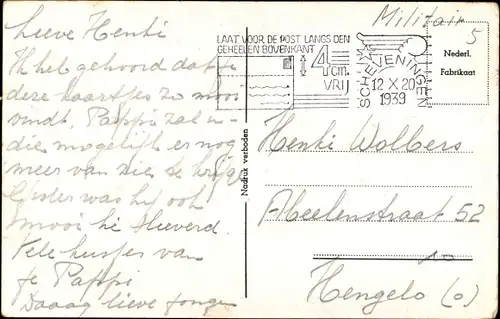 Lieve Henki
Ik heb gehoord dat je
deze kaartjes zo mooi
vindt. Pappi zal
die mogelijk er nog
meer van zien te krijgen
was hij ook
mooi hè lieverd.
Vele kusjes van
je Pappi
Daaag lieve jongen
Nadruk verboden
LAAT VOOR DE POST LANGS DEN
GEHEELEN BOVENKANT
4 cm.
VRIJ
SCHEVENINGEN
12 X 20
1939
Militair
5
Nederl.
Fabrikaat
Henki Wolbers
Abeelenstraat 52
Hengelo (O)